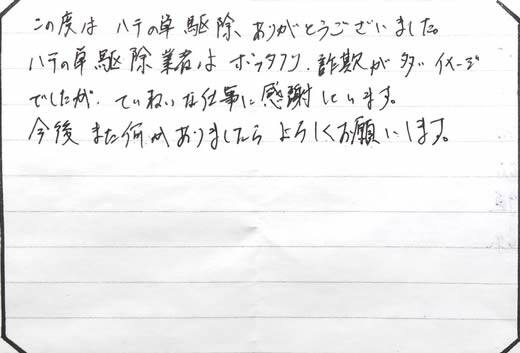 この度は ハチの巣駆除、ありがとうございました。
ハチの巣駆除業者は ボッタクリ、詐欺が多いイメージ
でしたが、ていねいな仕事に感謝しています。
今後また何かありましたら よろしくお願いします。